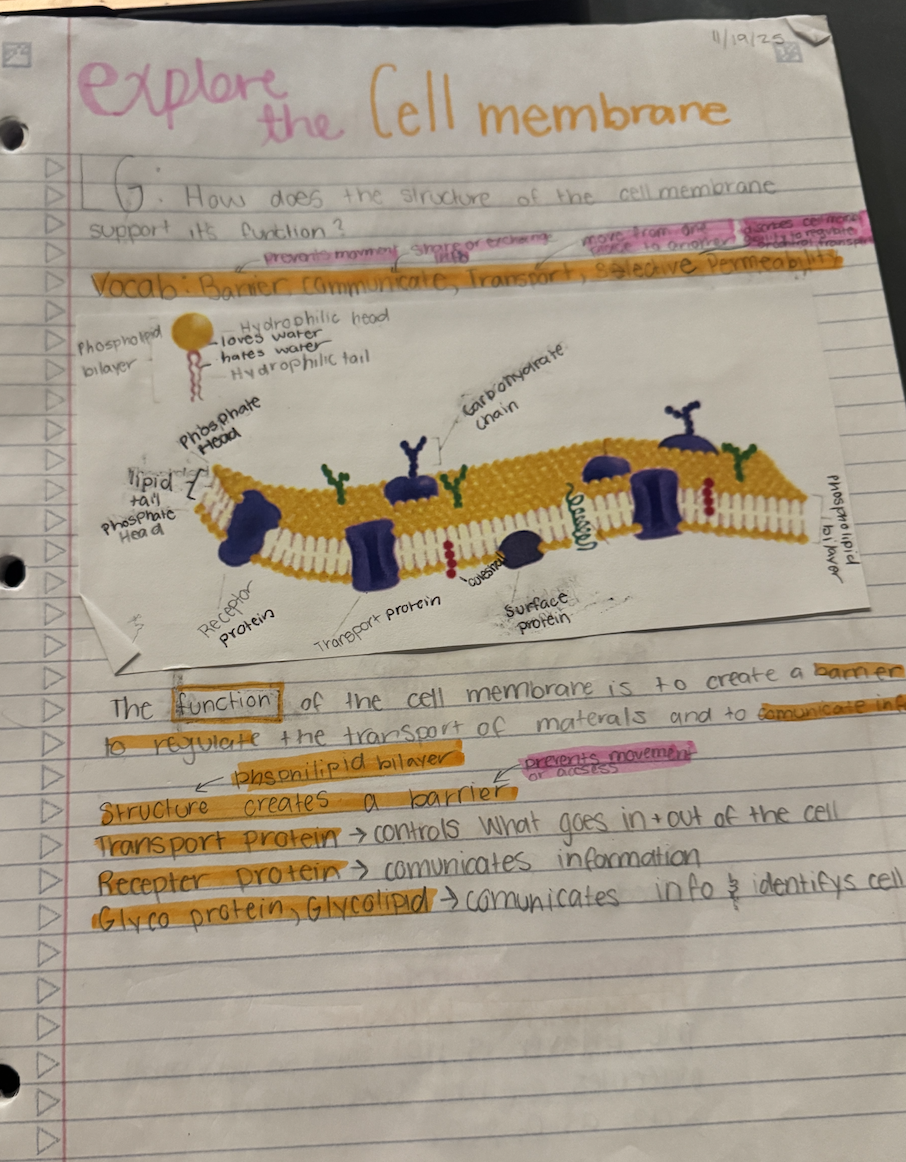 11/19/25
explore
the Cell membrane
LG: How does the structure of the cell membrane
support it's function?
prevents movment share or exchange info move from one place to another
Vocab: Barrier, Communicate, Transport, Selective Permeability
Phospholipid
bilayer
Hydrophilic head
loves water
hates water
Hydrophilic tail
Phosphate
Head
Carbohydrate
chain
lipid
tail
Phosphate
Head
phospholipid
bilayer
Receptor
protein
Transport protein
Surface
protein
The function of the cell membrane is to create a barrier
to regulate the transport of materals and to comunicate info
phsphilipid bilayer
prevents movement
or access
Structure creates a barrier
Transport protein → controls what goes in + out of the cell
Recepter protein → comunicates information
Glyco protein, Glycolipid → comunicates info & identifys cell